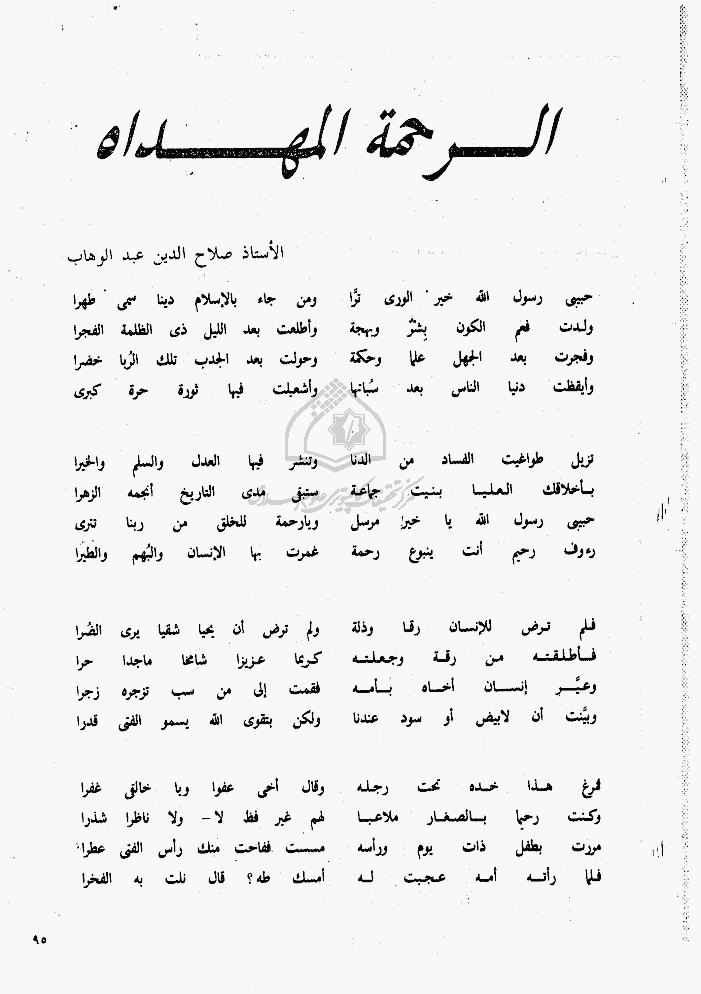 الـرحمة المهـداه
الأستاذ صلاح الدين عبد الوهاب
حبيبى رسول الله خير الورى ترًّا ومن جاء بالإسلام دينا سمى طهرا
ولـدت فعم الكون بِشْرٌ وبهجة وأطلعت بعد الليل ذى الظلمة الفجرا
وفجرت بعد الجهل علما وحكمة وحولت بعد الجدب تلك الرُبا خضرا
وأيقظت دنيا الناس بعد سُباتها وأشعلت فيها ثورة حرة كبرى
تزيل طواغيت الفساد من الدنا وتنشر فيها العدل والسلم والخيرا
بـأخلاقك العـليـا بنـيت جمـاعـة ستبقى مدى التاريخ أنجمه الزهرا
حبيبى رسول الله يا خير مرسل ويارحمة للخلق من ربنا تترى
رءوف رحيم أنت ينبوع رحمة غمرت بها الإنسان والبُهم والطيرا
فـلم تـرض للإنسـان رقـا وذلة ولم ترض أن يحيا شقيا يرى الضُرا
فـأطلـقتـه مـن رقـة وجـعلـتـه كـريما عـزيزا شامخا ماجدا حرا
وعيَّـر إنسـان أخـاه بـأمـه فقمت إلى من سب تزجره زجرا
وبيَّنت أن لابيض أو سود عندنا ولكن بتقوى الله يسمو الفتى قدرا
فمرغ هـذا خـده تحت رجلـه وقال أخى عفوا ويا خالقى غفرا
وكنت رحيما بـالصغـار ملاعبـا لهم غير فظ لا – ولا ناظرا شذرا
مررت بطفل ذات يوم ورأسه مسست ففاحت منك رأس الفتى عطرا
فـلما رأتـه أمـه عـجبت لـه أمسك طه؟ قال نلت به الفخرا
٩٥